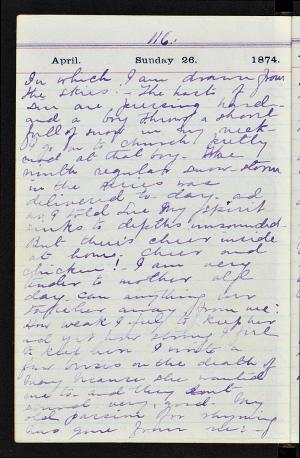 116.
April. Sunday 26. 1874.
In which I am drawn from
the skies! - The hosts of
are pressing hard -
and a boy throws a shovel
full of snow in my neck
I go on to church pretty
mad at that boy. The
ninth regular snow-storm
in the series was
delivered to day. and
as I told Sue my spirit
sinks to depths unsounded.
But there's cheer inside
at home. Cheer and
chicken! - I am very
tender to mother all
day. Can anything
together away from me:
How weak I feel to keep her
and yet how strong
to keep him I wrote a
few verses on the death of
because she wanted
me to and they don't
sound very good. My
old passion for rhyming
has gone from me: